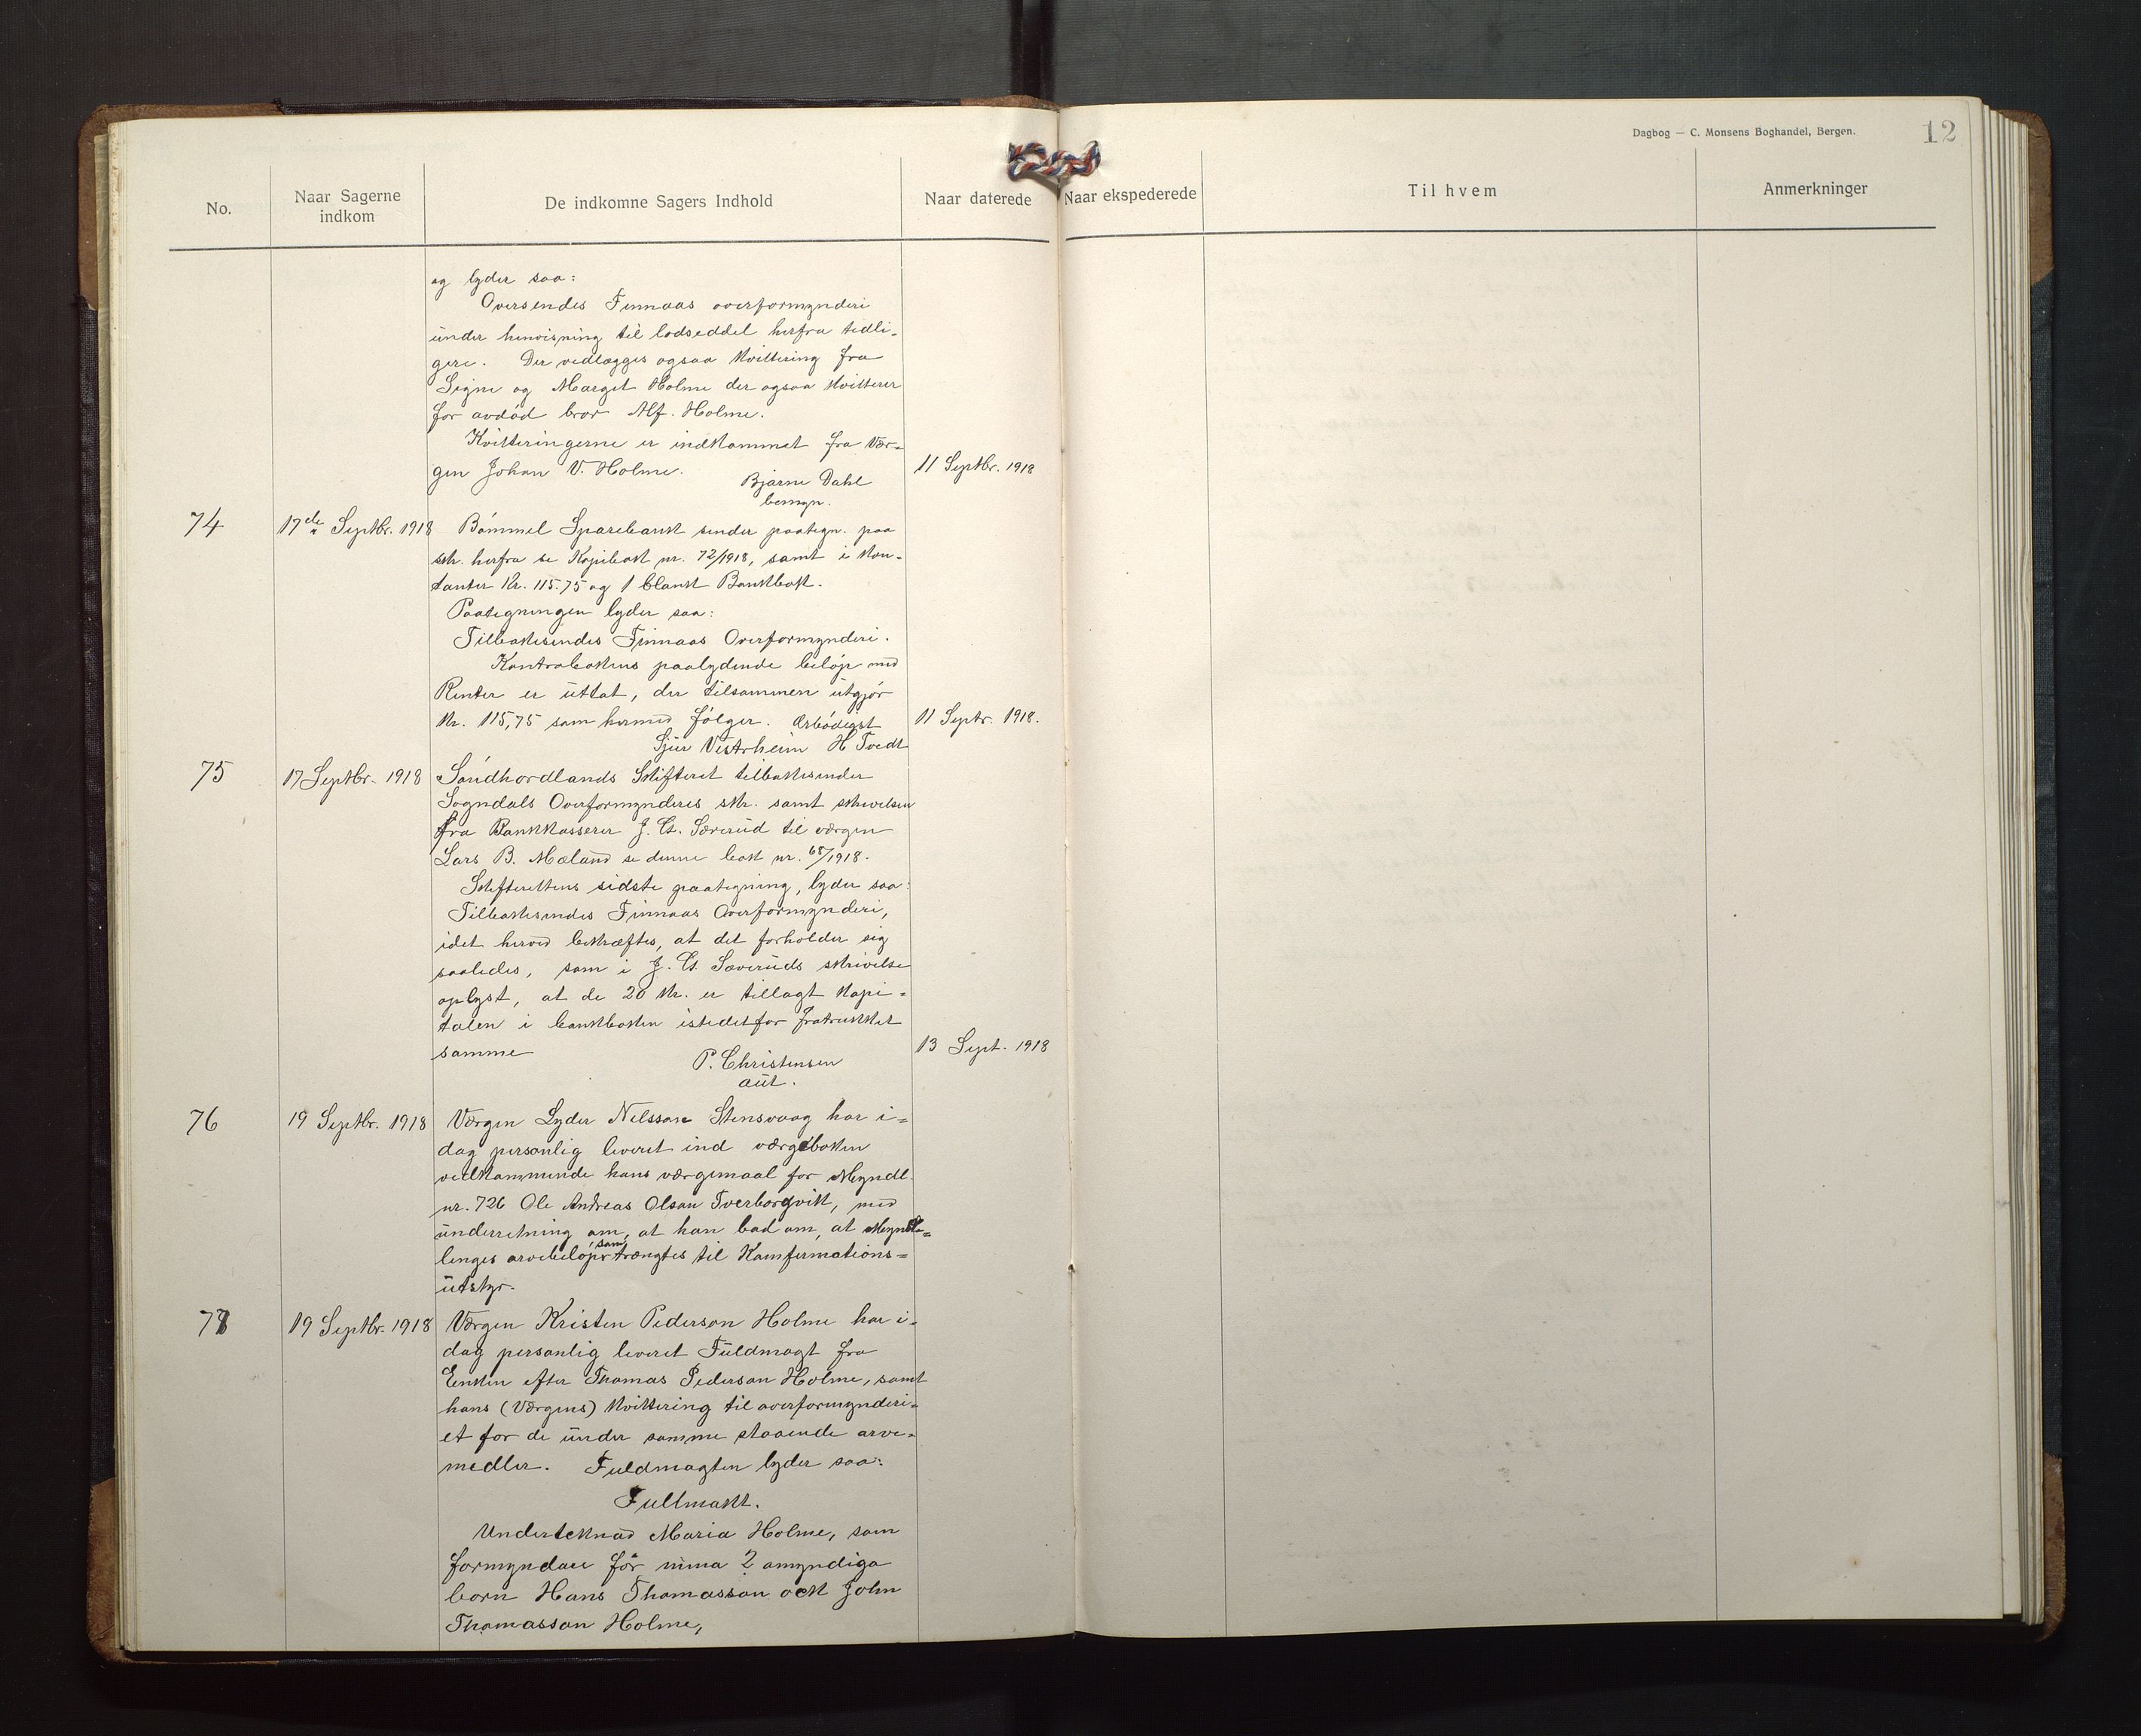 Dagbog — C. Monsens Boghandel, Bergen. 12
No. Naar Sagerne indkom De indkomne Sagers Indhold Naar daterede Naar ekspederede Til hvem Anmerkninger
og lyder saa:
Oversendes Finnaas overformynderi
under henvisning til lodseddel herfra tidli-
gere. Der vedlægges ogsaa kvittering fra
Signe og Marget Holme der ogsaa kvitterer
for avdød bror Alf. Holme.
Kvitteringerne er indkommet fra Vær-
gen Johan V. Holme. 11 Septbr. 1918
Bjarne Dahl
bemyn.
74 17de Septbr. 1918 Bømmel Sparebank sender paategn. paa
skr. herfra se Kopibok nr. 72/1918, samt i kon-
tanter Kr. 115.75 og 1 blank Bankbok.
Paategningen lyder saa:
Tilbakesendes Finnaas Overformynderi.
Kontrabokens paalydende beløp med
Renter er uttat, der tilsammen utgjør
Kr. 115,75 som hermed følger. Ærbødigst 11 Septr. 1918.
Sjur Vestrheim H Tvedt
75 17 Septbr. 1918 Søndhordlands Skifteret tilbakesender
Sogndals Overformynderis skr. samt skrivelsen
fra Bankkasserer J. Cs. Sæverud til værgen
Lars B. Mæland se denne bok nr. 68/1918.
Skifterettens sidste paategning, lyder saa:
Tilbakesendes Finnaas Overformynderi,
idet herved bekræftes, at det forholder sig
saaledes, som i J. Cs. Sæveruds skrivelse
oplyst, at de 20 Kr. er tillagt kapi-
talen i bankboken istedetfor fratrukket
samme 13 Sept. 1918
P. Christensen
aut.
76 19 Septbr. 1918 Værgen Lyder Nelsson Stensvaag har i-
dag personlig leveret ind værgeboken
vedkommende hans værgemaal for Myndl.
nr. 726 Ole Andreas Olson Tverborgvik, med
underretning om, at han bad om, at Myndl-
lenges arvebeløp, som trængtes til Komfirmations-
utstyr.
77 19 Septbr. 1918 Værgen Kristen Pederson Holme har i-
dag personlig leveret Fuldmagt fra
Enken efter Thomas Pederson Holme, samt
hans (Værgens) kvittering til overformynderi-
et for de under samme staaende arve-
medler. Fuldmagten lyder saa:
Fullmakt.
Undertecknad Maria Holme, som
formyndare för mina 2 omyndiga
born Hans Thomasson ock John
Thomasson Holme,